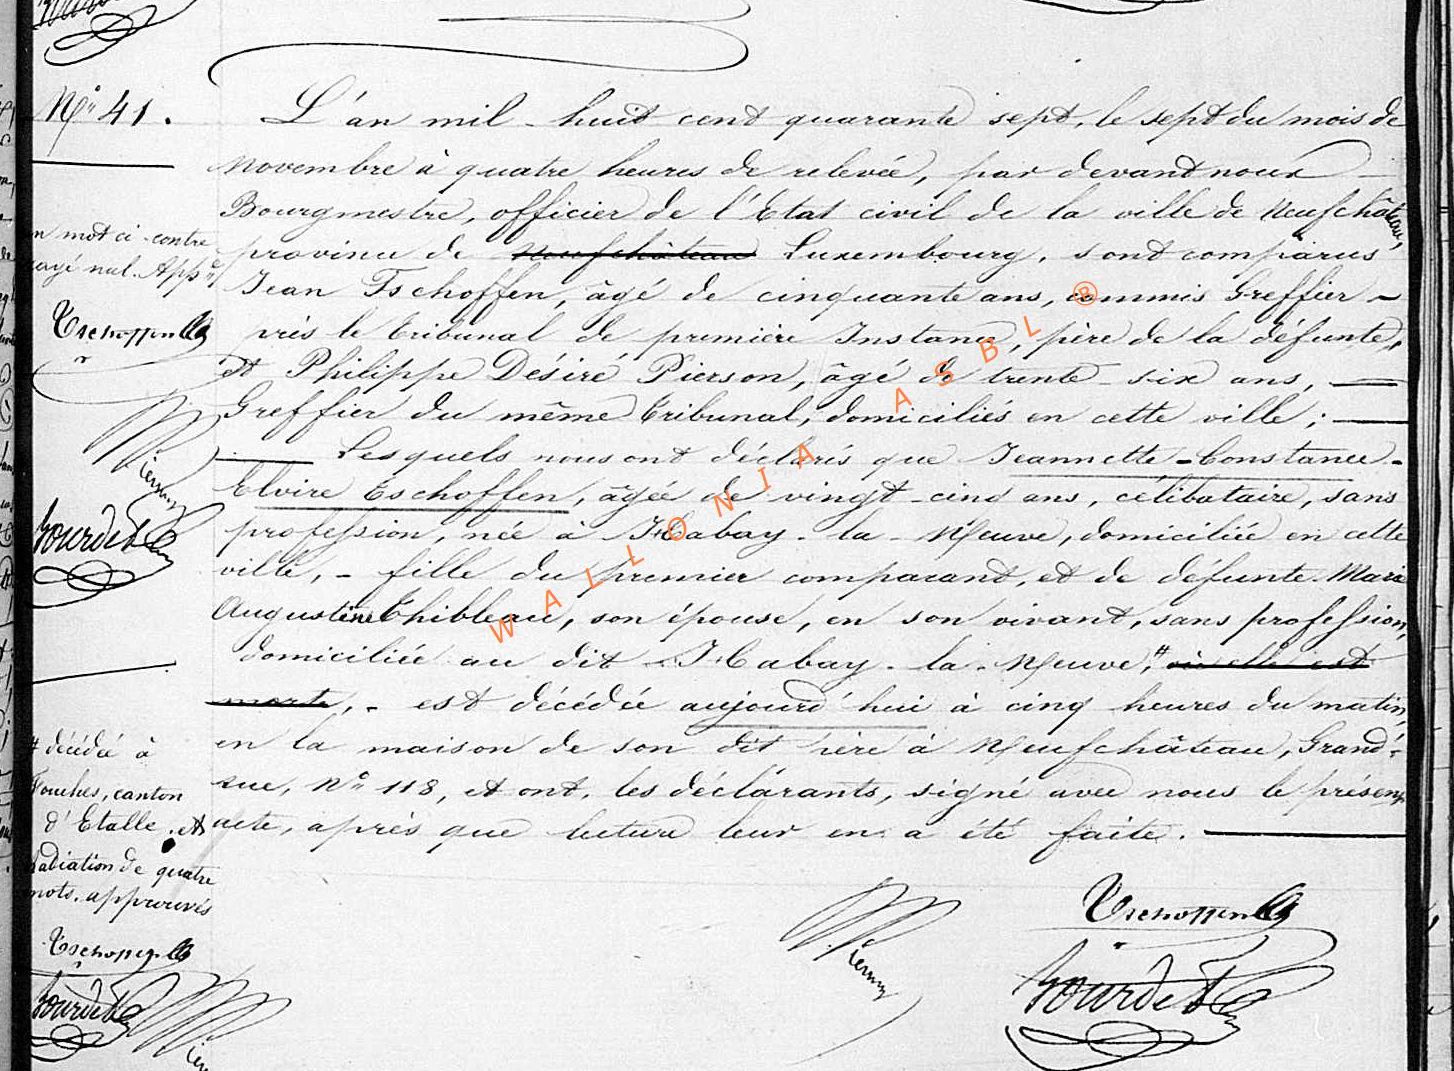 N° 41.
L'an mil huit cent quarante sept, le sept du mois de
novembre à quatre heures de relevée, par devant nous
Bourgmestre, officier de l'Etat civil de la ville de Neufchâteau,
province de Neufchâteau Luxembourg, sont comparus
Jean Tschoffen, âgé de cinquante ans, commis Greffier
près le tribunal de première Instance, père de la défunte,
et Philippe Désiré Pierson, âgé de trente-six ans,
Greffier du même tribunal, domiciliés en cette ville;
Lesquels nous ont déclaré que Jeannette-Constance-
Elvire Tschoffen, âgée de vingt-cinq ans, célibataire, sans
profession, née à Habay-la-Neuve, domiciliée en cette
ville, - fille du premier comparant, et de défunte Marie
Augustine Thibleau, son épouse, en son vivant, sans profession,
domiciliée au dit Habay-la-Neuve, # où elle est
morte, - est décédée aujourd'hui à cinq heures du matin,
en la maison de son dit père à Neufchâteau, Grand'-
rue, N° 118, et ont, les déclarants, signé avec nous le présent
acte, après que lecture leur en a été faite.
n mot ci-contre
rayé nul. App.é
Tschoffen
Pierson
Gourdet
# décédée à
Fouches, canton
d'Etalle. et
Radiation de quatre
mots. approuvés
Tschoffen
Gourdet
Pierson
Tschoffen
Gourdet
WALLONIA ASBL ®